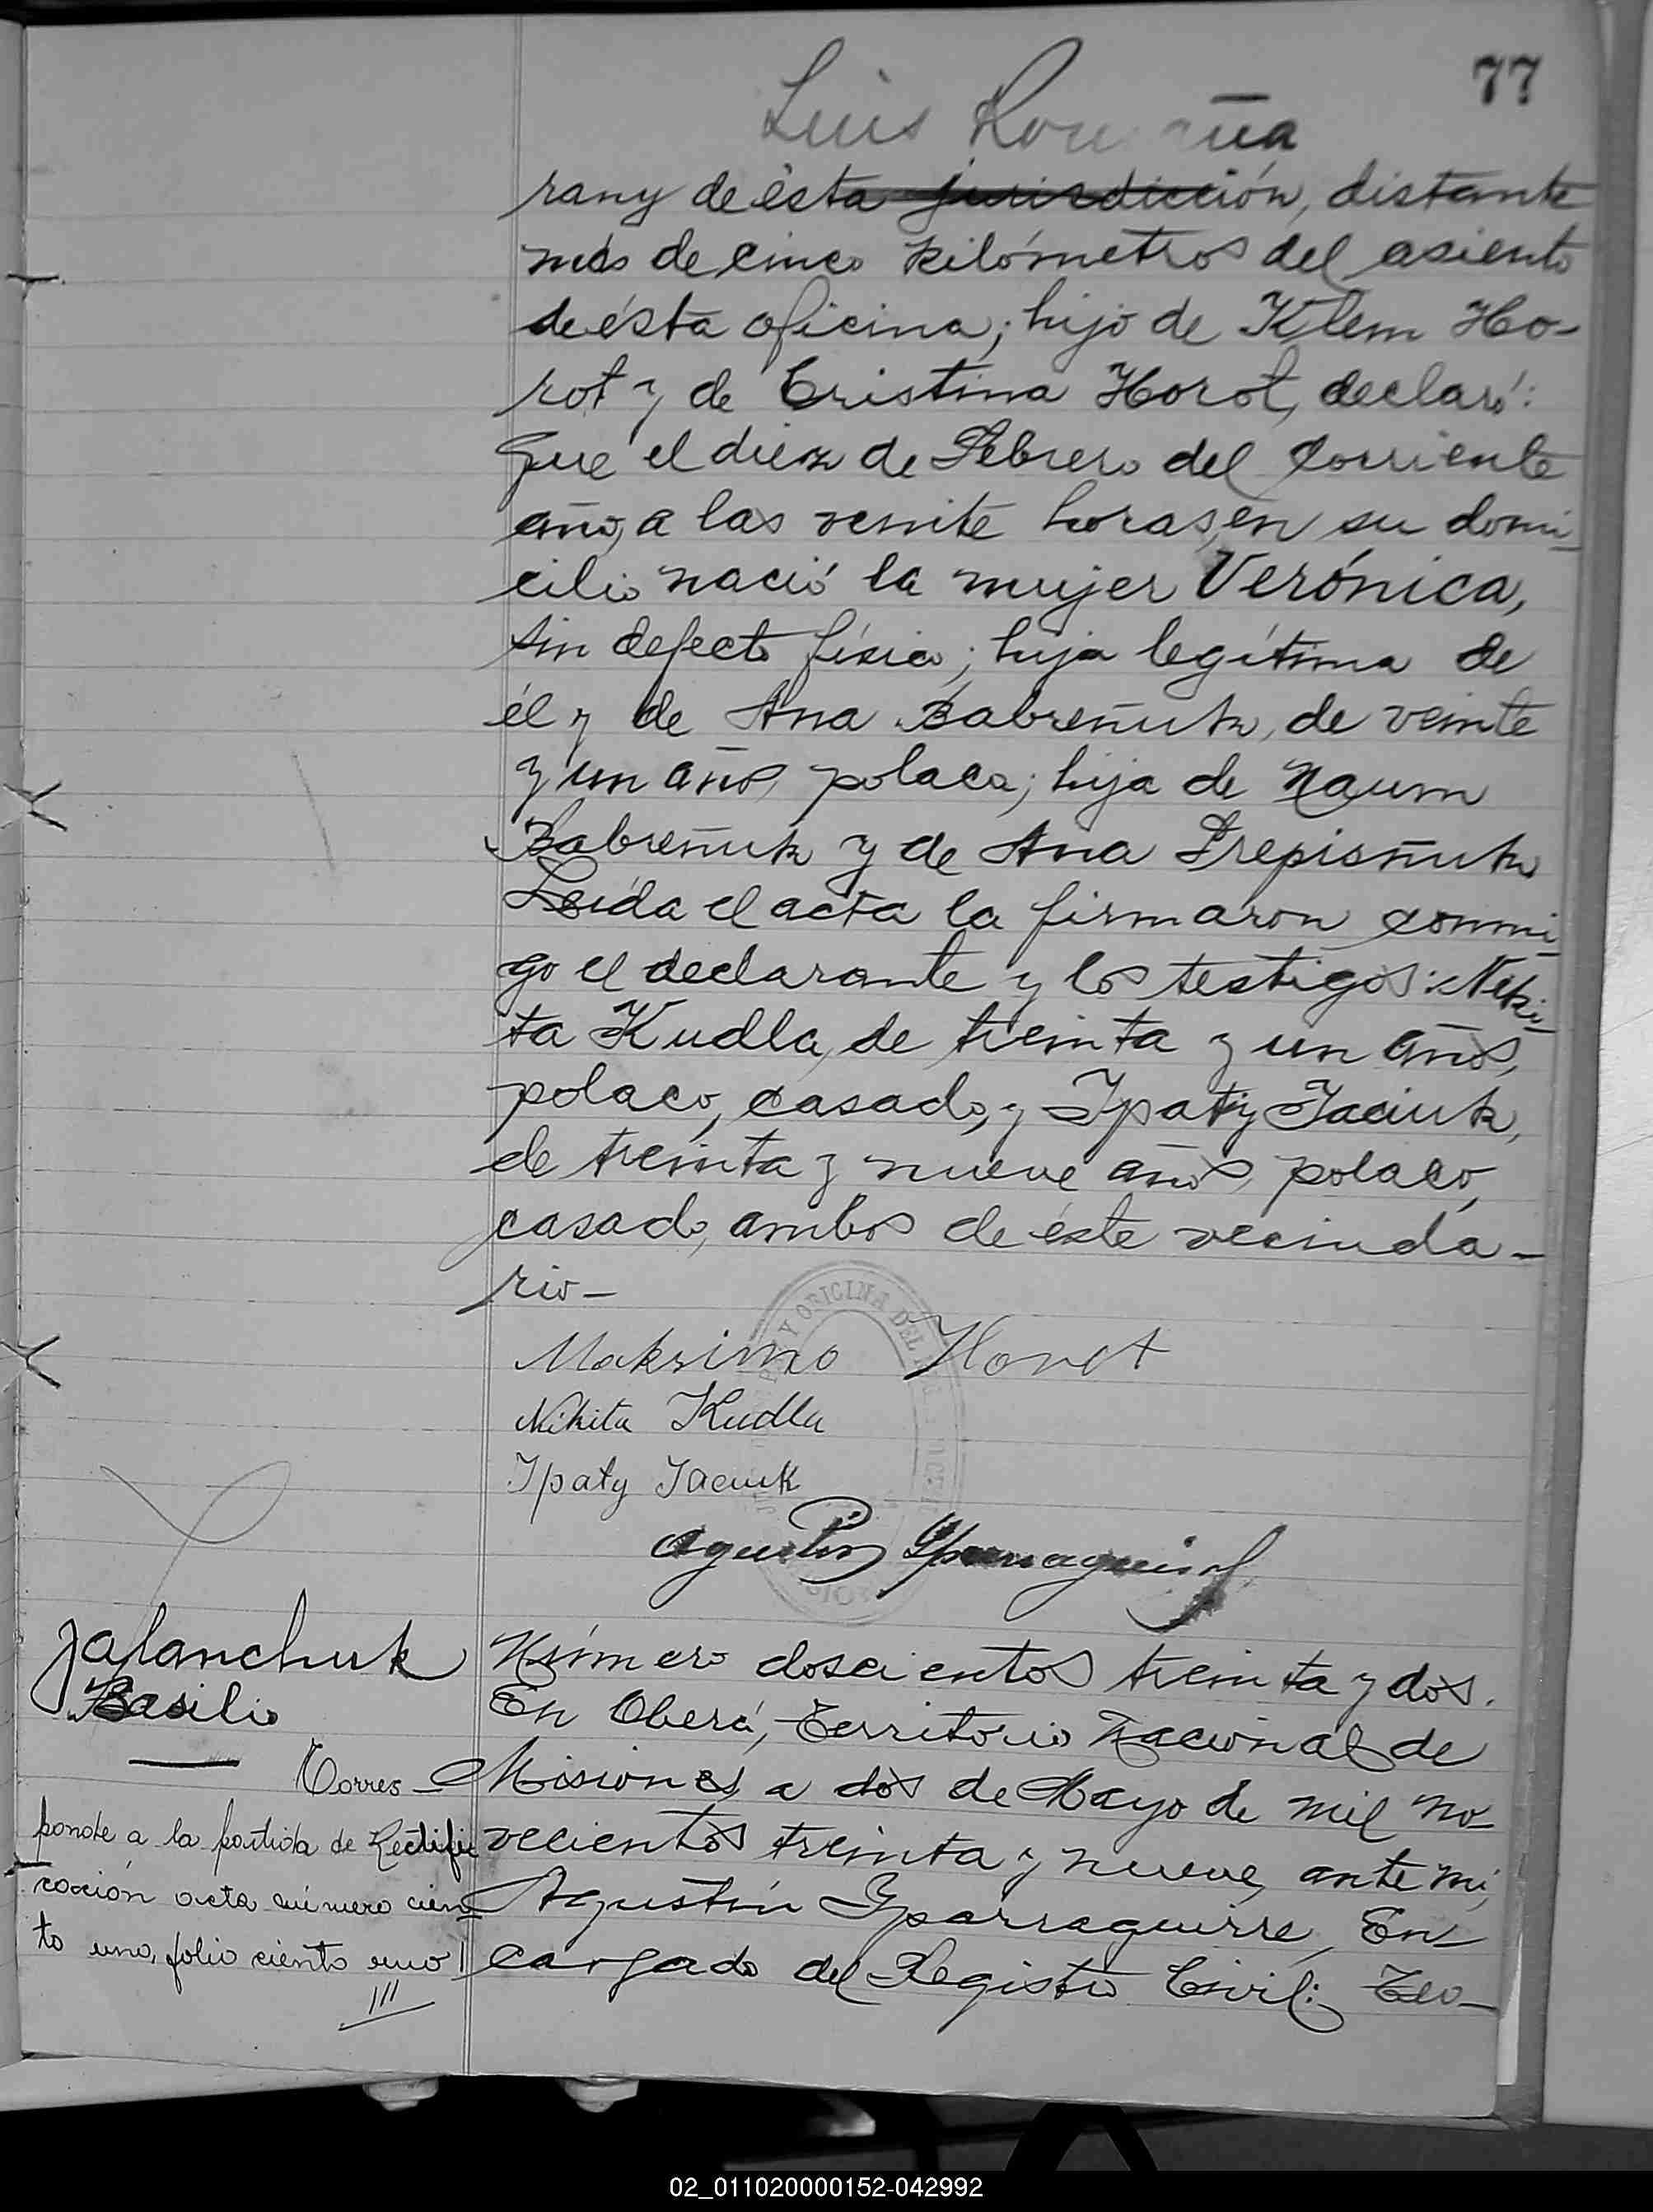 77
Luis
rany de ésta jurisdicción, distante
más de cinco kilómetros del asiento
de ésta oficina; hijo de Klem Ho-
rot y de Cristina Horot, declaró:
Que el diez de Febrero del corriente
año, a las veinte horas, en su domi-
cilio nació la mujer Verónica,
sin defecto físico; hija legítima de
él y de Ana Babreñuk, de veinte
y un años, polaca; hija de Naum
Babreñuk y de Ana
Leída el acta la firmaron conmi-
go el declarante y los testigos: Niki-
ta Kudla, de treinta y un años,
polaco, casado, y Ypaty Jaciuk,
de treinta y nueve años, polaco,
casado, ambos de éste vecinda-
rio-
Maksimo Horot
Nikita Kudla
Ipaty Jaciuk
OFICINA DEL
Agustin Yparraguirre
Jalanchuk
Basilio
Corres-
ponde a la partida de Rectifi
cación acta número cien-
to uno, folio ciento uno
Número doscientos treinta y dos.
En Oberá, Territorio Nacional de
Misiones, a dos de Mayo de mil no-
vecientos treinta y nueve, ante mi,
Agustín Yparraguirre, En-
cargado del Registro Civil: Teo-
02_011020000152-042992